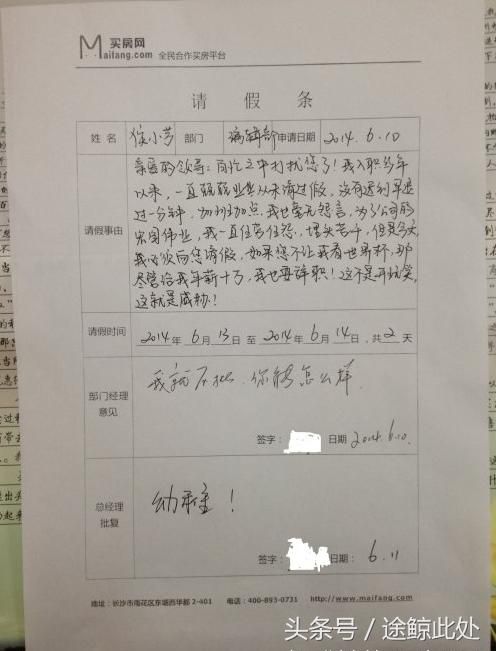 买房网
Maifang.com 全民合作买房平台
请 假 条
姓 名 侯小芳 部门 编辑部 申请日期 2014.6.10
请假事由
亲爱的领导：百忙之中打扰您了！我入职多年
以来，一直兢兢业业从未请过假，没有迟到早退
过一分钟，加班加点，我也毫无怨言，为了公司的
宏图伟业，我一直任劳任怨，埋头苦干，但是今天
我必须向您请假，如果您不让我看世界杯，那
尽管给我年薪十万，我也要辞职！这不是开玩笑，
这就是威胁！
请假时间 2014年 6月13日 至 2014年 6月14日，共2天
部门经理
意见
我就不批，你能怎么样
签字： 日期 2014.6.10
总经理
批复
幼稚！
签字： 日期： 6.11
地址：长沙市雨花区东塘西华都2-401 电话：400-893-0731 http://www.maifang.com
头条号 / 途鲸此处